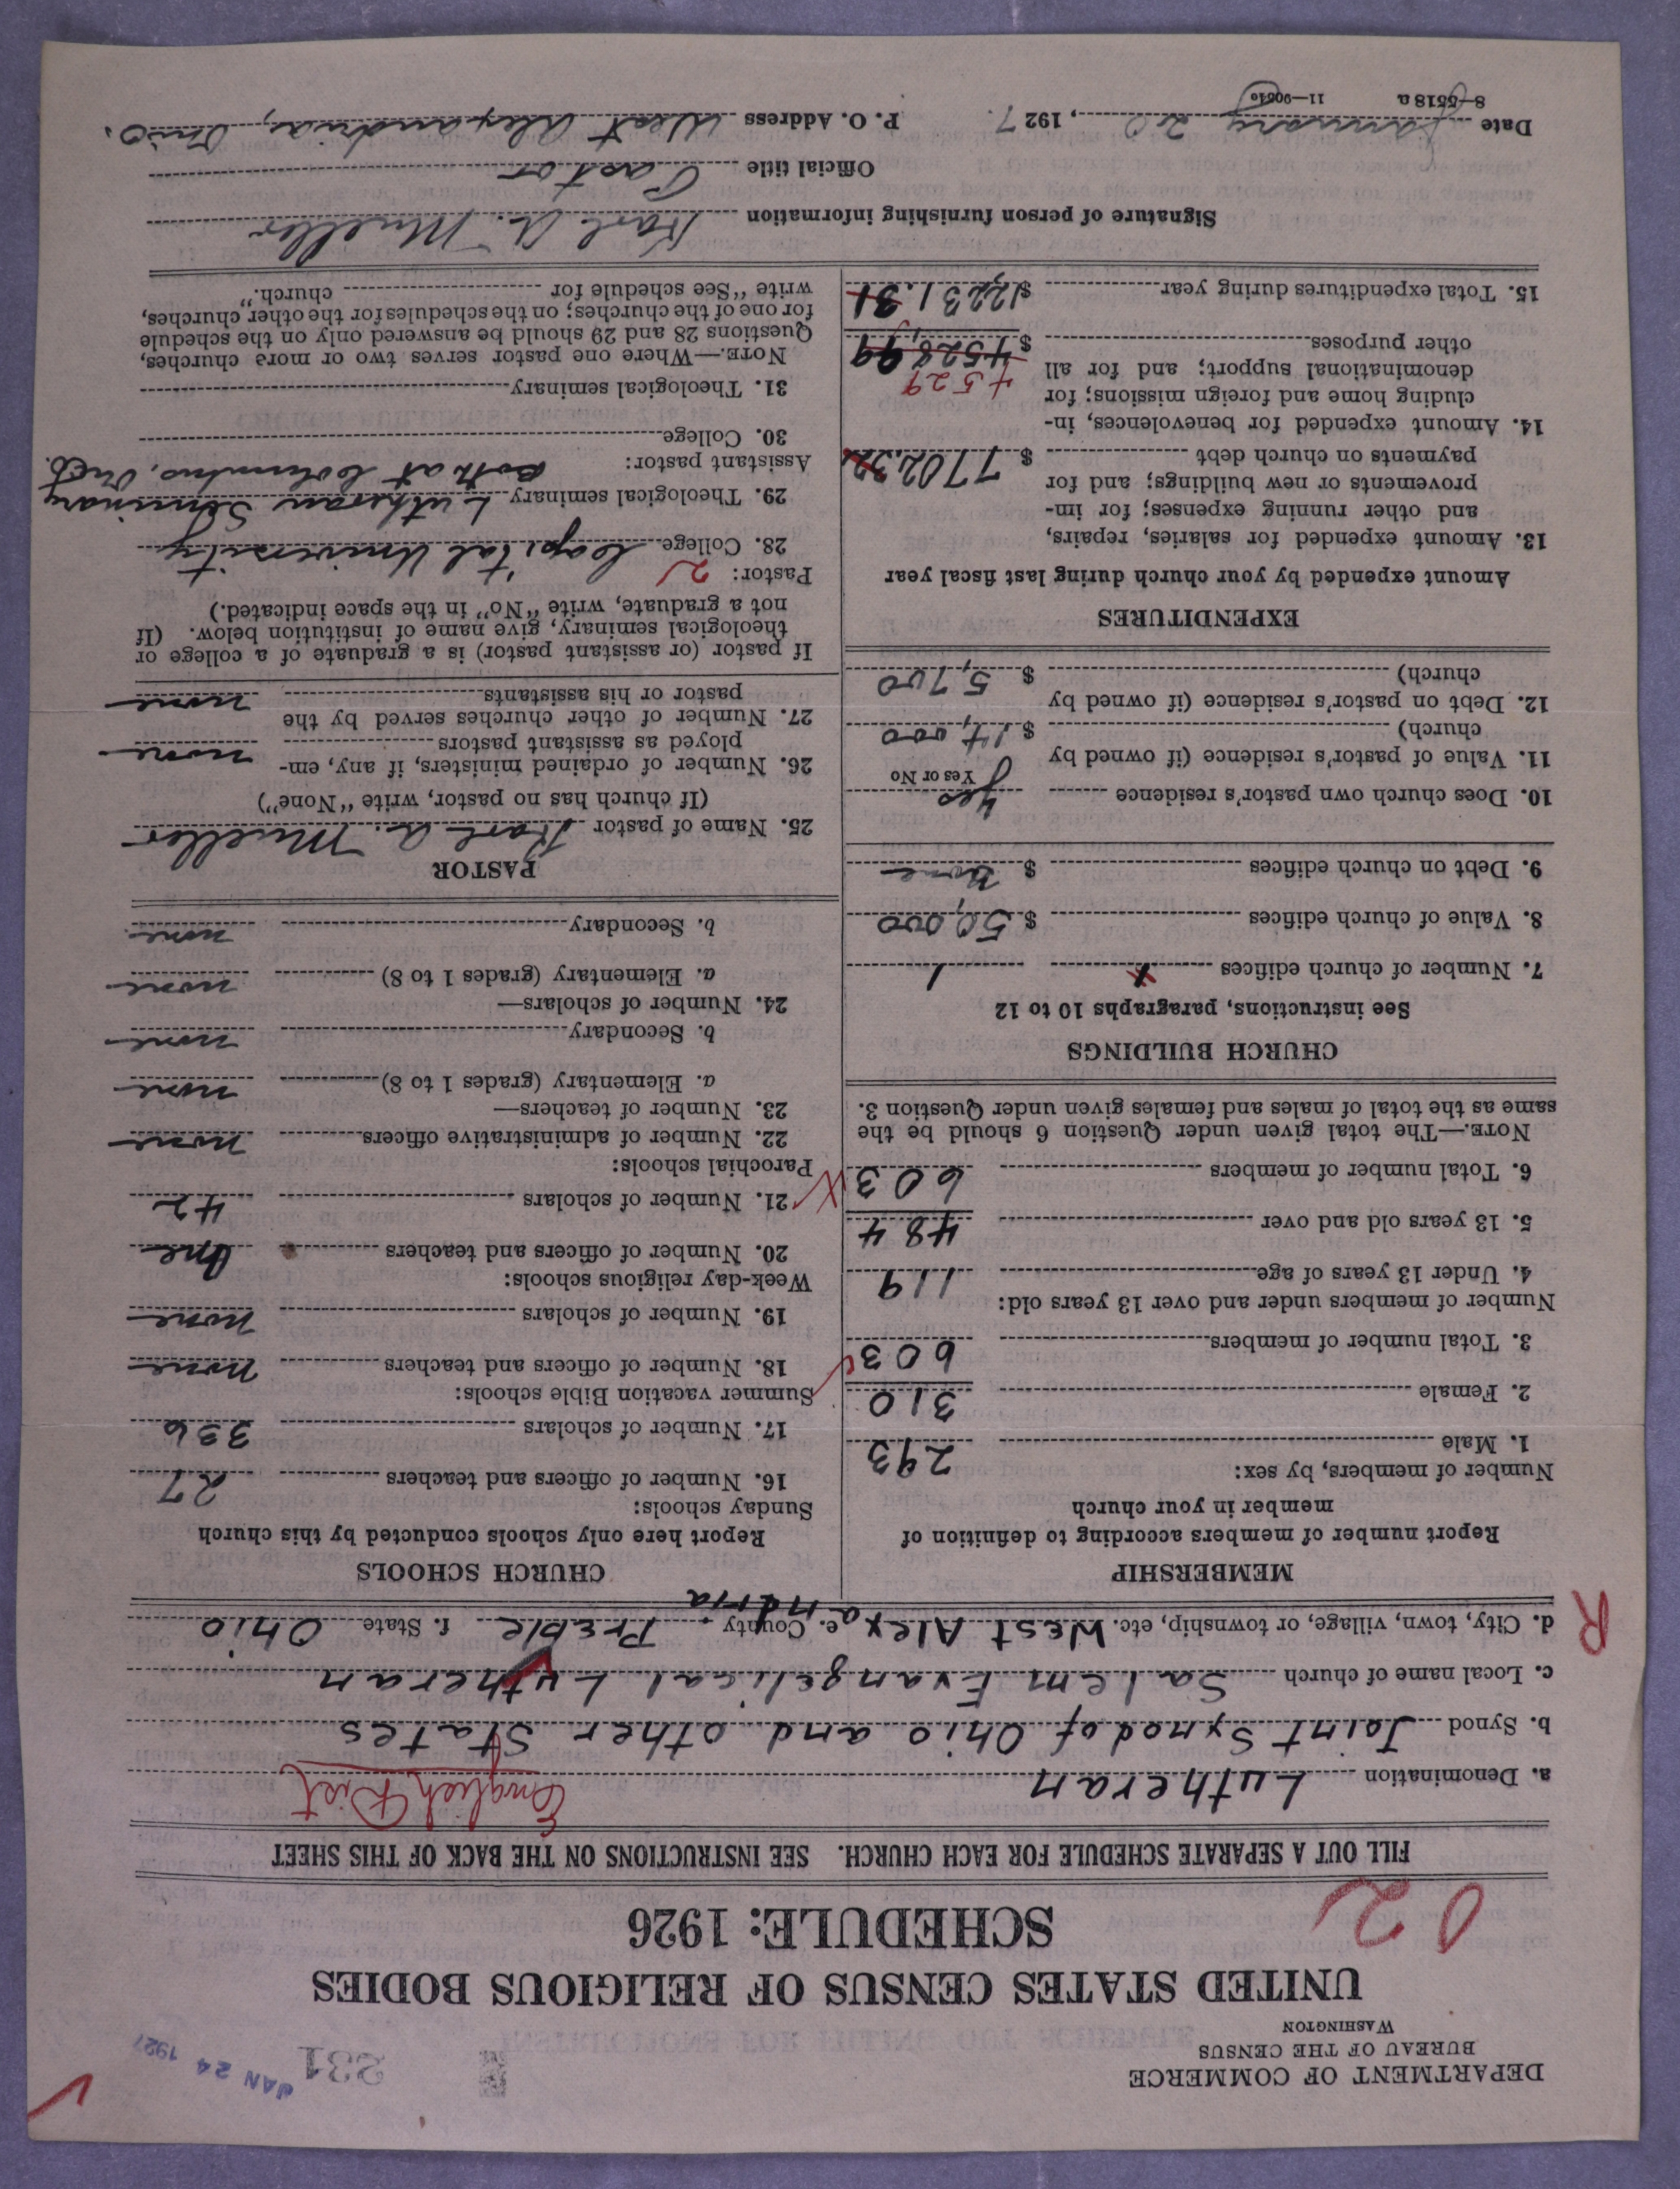 DEPARTMENT OF COMMERCE
BUREAU OF THE CENSUS
WASHINGTON
231
JAN 24 1927
UNITED STATES CENSUS OF RELIGIOUS BODIES
SCHEDULE: 1926
02
FILL OUT A SEPARATE SCHEDULE FOR EACH CHURCH. SEE INSTRUCTIONS ON THE BACK OF THIS SHEET
a. Denomination Lutheran English Dist
b. Synod Joint Synod of Ohio and other States
c. Local name of church Salem Evangelical Lutheran
R
d. City, town, village, or township, etc. West Alexandria e. County Preble f. State Ohio
MEMBERSHIP
Report number of members according to definition of
member in your church
Number of members, by sex:
1. Male 293
2. Female 310
3. Total number of members 603
Number of members under and over 13 years old:
4. Under 13 years of age 119
5. 13 years old and over 484
6. Total number of members 603
NOTE.—The total given under Question 6 should be the
same as the total of males and females given under Question 3.
CHURCH BUILDINGS
See instructions, paragraphs 10 to 12
7. Number of church edifices 1
8. Value of church edifices $ 50,000
9. Debt on church edifices $ None
10. Does church own pastor's residence Yes
Yes or No
11. Value of pastor's residence (if owned by
church) $ 14,000
12. Debt on pastor's residence (if owned by
church) $ 5,700
EXPENDITURES
Amount expended by your church during last fiscal year
13. Amount expended for salaries, repairs,
and other running expenses; for im-
provements or new buildings; and for
payments on church debt $ 7702.32
14. Amount expended for benevolences, in-
cluding home and foreign missions; for
denominational support; and for all
other purposes $ 4528.99
4529
15. Total expenditures during year $ 12231.31
CHURCH SCHOOLS
Report here only schools conducted by this church
Sunday schools:
16. Number of officers and teachers 27
17. Number of scholars 336
Summer vacation Bible schools:
18. Number of officers and teachers none
19. Number of scholars none
Week-day religious schools:
20. Number of officers and teachers One
21. Number of scholars 42
Parochial schools:
22. Number of administrative officers none
23. Number of teachers—
a. Elementary (grades 1 to 8) none
b. Secondary none
24. Number of scholars—
a. Elementary (grades 1 to 8) none
b. Secondary none
PASTOR
25. Name of pastor Karl A. Mueller
(If church has no pastor, write "None")
26. Number of ordained ministers, if any, em-
ployed as assistant pastors none
27. Number of other churches served by the
pastor or his assistants none
If pastor (or assistant pastor) is a graduate of a college or
theological seminary, give name of institution below. (If
not a graduate, write "No" in the space indicated.)
Pastor: 2
28. College Capital University
29. Theological seminary Lutheran Seminary
Both at Columbus, Ohio.
Assistant pastor:
30. College
31. Theological seminary
NOTE.—Where one pastor serves two or more churches,
Questions 28 and 29 should be answered only on the schedule
for one of the churches; on the schedules for the other churches,
write "See schedule for church."
Signature of person furnishing information Karl A. Mueller
Official title Pastor
Date January 20, 1927. P. O. Address West Alexandria, Ohio.
8—5518 a 11—9051